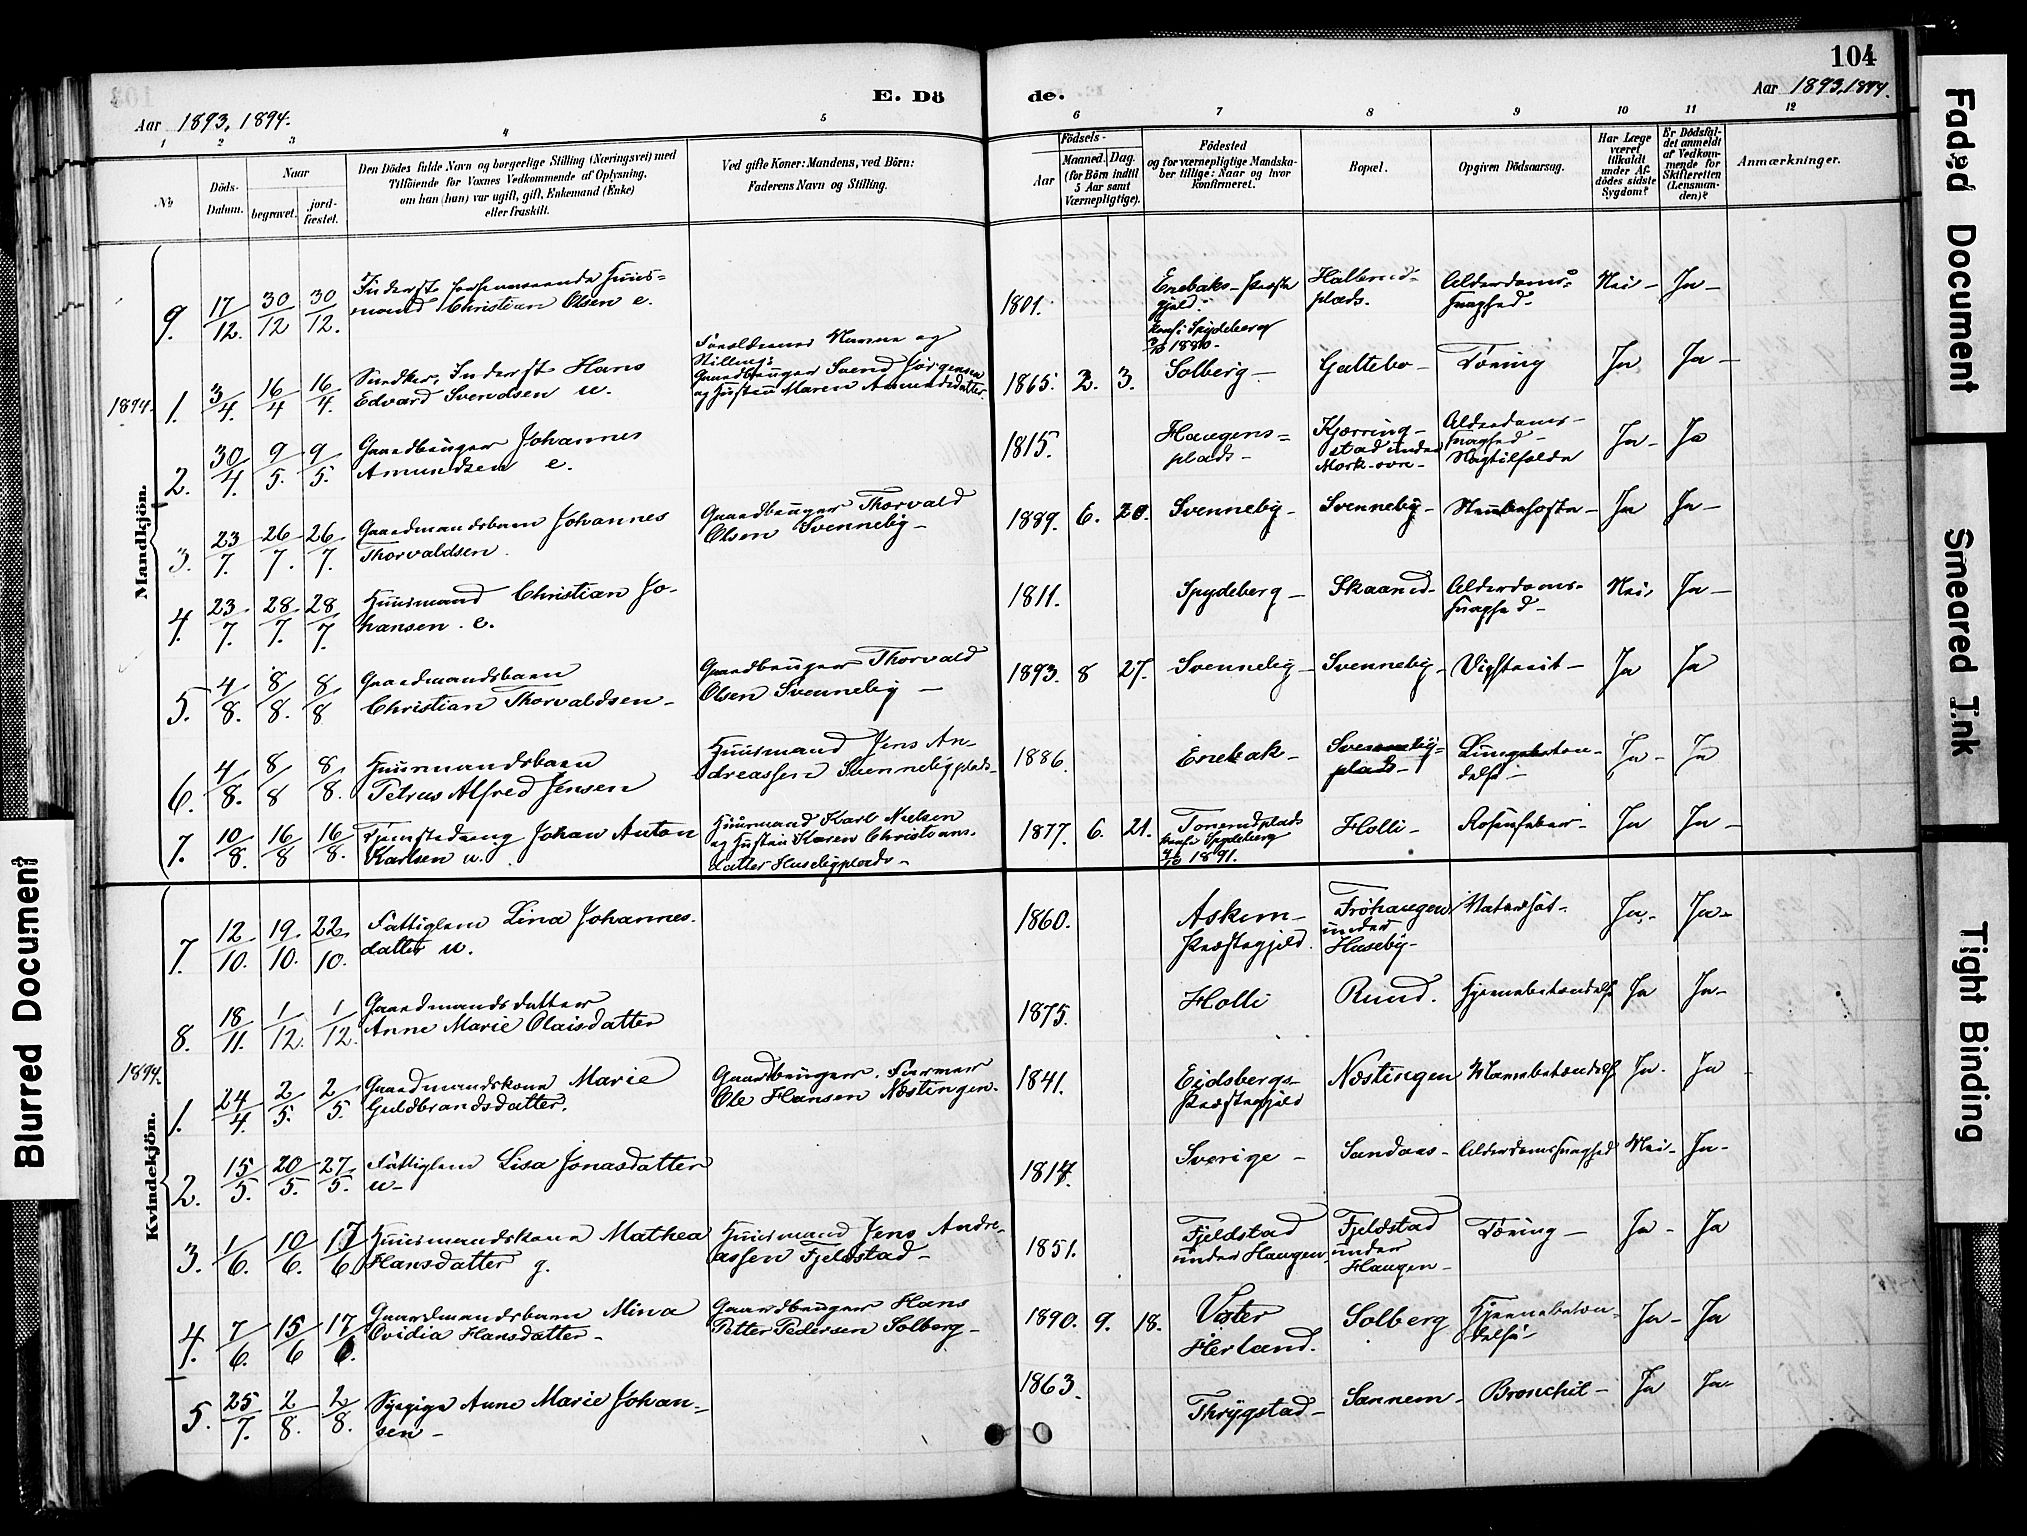 104
E. Dö de.
Aar 1893, 1894.
Aar 1893, 1894.
1 2 3 4 5 6 7 8 9 10 11 12
No
Döds-Datum.
Naar
begravet.
jord-fæstet.
Den Dödes fulde Navn og borgerlige Stilling (Næringsvei) med
Tilföiende for Voxnes Vedkommende af Oplysning,
om han (hun) var ugift, gift, Enkemand (Enke)
eller fraskilt.
Ved gifte Koner: Mandens, ved Börn:
Faderens Navn og Stilling.
Födsels-
Aar
Maaned. Dag.
(for Börn indtil
5 Aar samt
Værnepligtige).
Födested
og for værnepligtige Mandska-
ber tillige: Naar og hvor
konfirmeret.
Bopæl.
Opgiven Dödsaarsag.
Har Læge
været
tilkaldt
under Af-
dödes sidste
Sygdom?
Er Dödsfal-
det anmeldt
af Vedkom-
mende for
Skifteretten
(Lensman-
den)?
Anmærkninger.
Mandkjön.
9. 17/12. 30/12 30/12. Inderst forhenværende Huus-
mand Christian Olsen e. 1801. Enebaks Præste
gjeld. Alderdoms-
svaghed. Nei - Ja -
1894. 1. 3/4. 16/4 16/4. Inderst Hans
Edvard Svendsen u. Forældrenes Navne og
Stilling:
Gaardbruger Svend Jörgensen
og Hustru Maren Amundsdatter. 1865. 2. 3. konf. i Spydeberg
1880.
Solberg - Galtebo - Tæring Ja Ja -
2. 30/4. 9/5. 9/5. Gaardbruger Johannes
Amundsen e. 1815. Haugens=
plads - Kjærring-
stad under
Mork Alderdoms-
svaghed - Ja - Ja
3. 23/7. 26/7. 26/7. Gaardmandsbarn Johannes
Thorvaldsen. Gaardbruger Thorvald
Olsen Svenneby - 1889. 6. 20. Svenneby - Svenneby - Strubehoste - Ja Ja -
4. 23/7. 28/7. 28/7. Huusmand Christian Jo-
hansen. e. 1811. Spydeberg - Skaarud - Alderdoms-
svaghed - Nei. Ja -
5. 4/8. 8/8. 8/8 Gaardmandsbarn
Christian Thorvaldsen - Gaardbruger Thorvald
Olsen Svenneby - 1893. 8 27. Svenneby - Svenneby - Ja Ja
6. 4/8. 8/8 8/8. Huusmandsbarn
Petrus Alfred Jensen Huusmand Jens An-
dreassen Svennebyplads - 1886. Enebak - Svenneby=
plads - Lungebetæn-
delse - Ja - Ja
7. 10/8. 16/8 16/8. Tjenestedreng Johan Anton
Karlsen u. Huusmand Karl Nielsen
og Hustru Karen Christians-
datter Husebyplads - 1877. 6. 21. plads
konf. i Spydeberg
4/10 1891. Holli - Rosenfeber - Ja Ja -
Kvindekjön.
7. 12/10. 19/10. 22/10. Fattiglem Lina Johannes-
datter u. 1860. Askim -
Præstegjeld. Fröhaugen
under
Huseby - Vatersot - Ja. Ja -
8. 18/11. 1/12. 1/12. Gaardmandsdatter
Anne Marie Olaisdatter 1875. Holli Rund. Hjernebetændelse Ja Ja -
1894. 1. 24/4. 2/5. 2/5. Gaardmandskone Marie
Guldbrandsdatter. Gaardbruger. Farmer
Ole Hansen Næstingen. 1841. Eidsbergs-
Præstegjeld Næstingen Mavebetændelse Ja - Ja
2. 15/5. 20/5. 27/5. Fattiglem Lisa Jonasdatter
u - 1814. Sverige - Sandaas - Alderdomssvaghed Nei - Ja -
3. 1/6. 10/6. 17/6. Huusmandskone Mathea
Hansdatter g. Huusmand Jens Andre-
assen Fjeldstad - 1851. Fjeldstad
under Haugen. Fjeldstad
under
Haugen - Tæring - Ja - Ja
4. 7/6. 15/6 17/6. Gaardmandsbarn Mina
Ovidia Hansdatter - Gaardbruger Hans
Petter Pedersen Solberg - 1890. 9. 18. Vester
Herland. Solberg Hjernebetæn-
delse Ja - Ja
5. 25/7. 2/8. 2/8. Sypige Anne Marie Johan-
sen - 1863. Thrygstad - Sannem - Bronchit - Ja Ja -
Faded Document
Smeared Ink
Tight Binding
Blurred Document